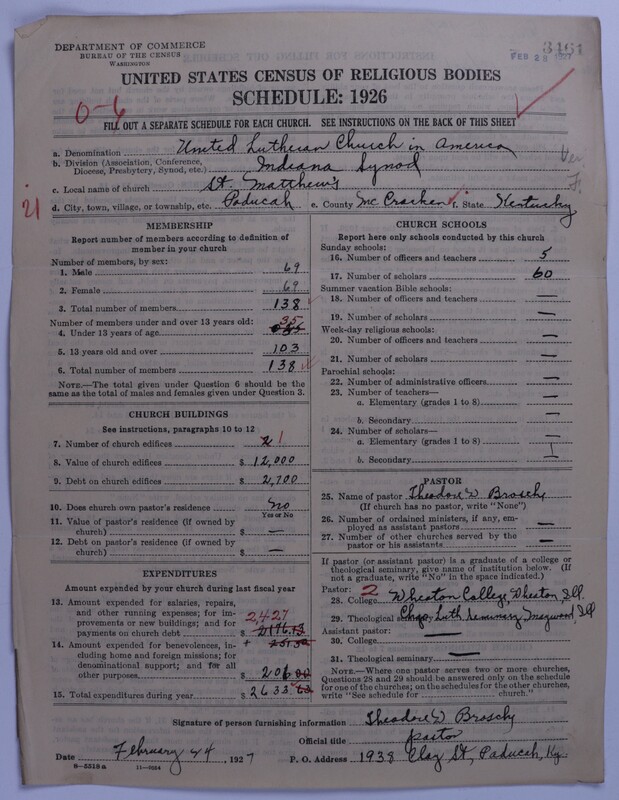 DEPARTMENT OF COMMERCE
BUREAU OF THE CENSUS
WASHINGTON
3461
FEB 28 1927
UNITED STATES CENSUS OF RELIGIOUS BODIES
SCHEDULE: 1926
0-6
FILL OUT A SEPARATE SCHEDULE FOR EACH CHURCH. SEE INSTRUCTIONS ON THE BACK OF THIS SHEET
a. Denomination United Lutheran Church in America
b. Division (Association, Conference, Diocese, Presbytery, Synod, etc.) Indiana Synod
c. Local name of church St. Matthew's
21
d. City, town, village, or township, etc. Paducah e. County McCracken f. State Kentucky
MEMBERSHIP
Report number of members according to definition of
member in your church
Number of members, by sex:
1. Male 69
2. Female 69
3. Total number of members 138
Number of members under and over 13 years old:
4. Under 13 years of age 35
5. 13 years old and over 103
6. Total number of members 138
NOTE.—The total given under Question 6 should be the
same as the total of males and females given under Question 3.
CHURCH BUILDINGS
See instructions, paragraphs 10 to 12
7. Number of church edifices 1
8. Value of church edifices $ 12,000
9. Debt on church edifices $ 2,700
10. Does church own pastor's residence No
Yes or No
11. Value of pastor's residence (if owned by
church) $ —
12. Debt on pastor's residence (if owned by
church) $ —
EXPENDITURES
Amount expended by your church during last fiscal year
13. Amount expended for salaries, repairs,
and other running expenses; for im-
provements or new buildings; and for 2,427
payments on church debt $
14. Amount expended for benevolences, in-
cluding home and foreign missions; for
denominational support; and for all
other purposes $ 206
15. Total expenditures during year $ 2633
CHURCH SCHOOLS
Report here only schools conducted by this church
Sunday schools:
16. Number of officers and teachers 5
17. Number of scholars 60
Summer vacation Bible schools:
18. Number of officers and teachers —
19. Number of scholars —
Week-day religious schools:
20. Number of officers and teachers —
21. Number of scholars —
Parochial schools:
22. Number of administrative officers —
23. Number of teachers—
a. Elementary (grades 1 to 8) —
b. Secondary —
24. Number of scholars—
a. Elementary (grades 1 to 8)
b. Secondary
PASTOR
25. Name of pastor Theodore D Broschy
(If church has no pastor, write "None")
26. Number of ordained ministers, if any, em-
ployed as assistant pastors —
27. Number of other churches served by the
pastor or his assistants —
If pastor (or assistant pastor) is a graduate of a college or
theological seminary, give name of institution below. (If
not a graduate, write "No" in the space indicated.)
Pastor: 2
28. College Wheaton College, Wheaton, Ill.
29. Theological seminary Chgo Luth Seminary Maywood, Ill
Assistant pastor:
30. College —
31. Theological seminary —
NOTE.—Where one pastor serves two or more churches,
Questions 28 and 29 should be answered only on the schedule
for one of the churches; on the schedules for the other churches,
write "See schedule for church."
Signature of person furnishing information Theodore D Broschy
Official title pastor
Date February 24, 1927 P. O. Address 1938 Clay St, Paducah, Ky.
8-5318 a 11-9034